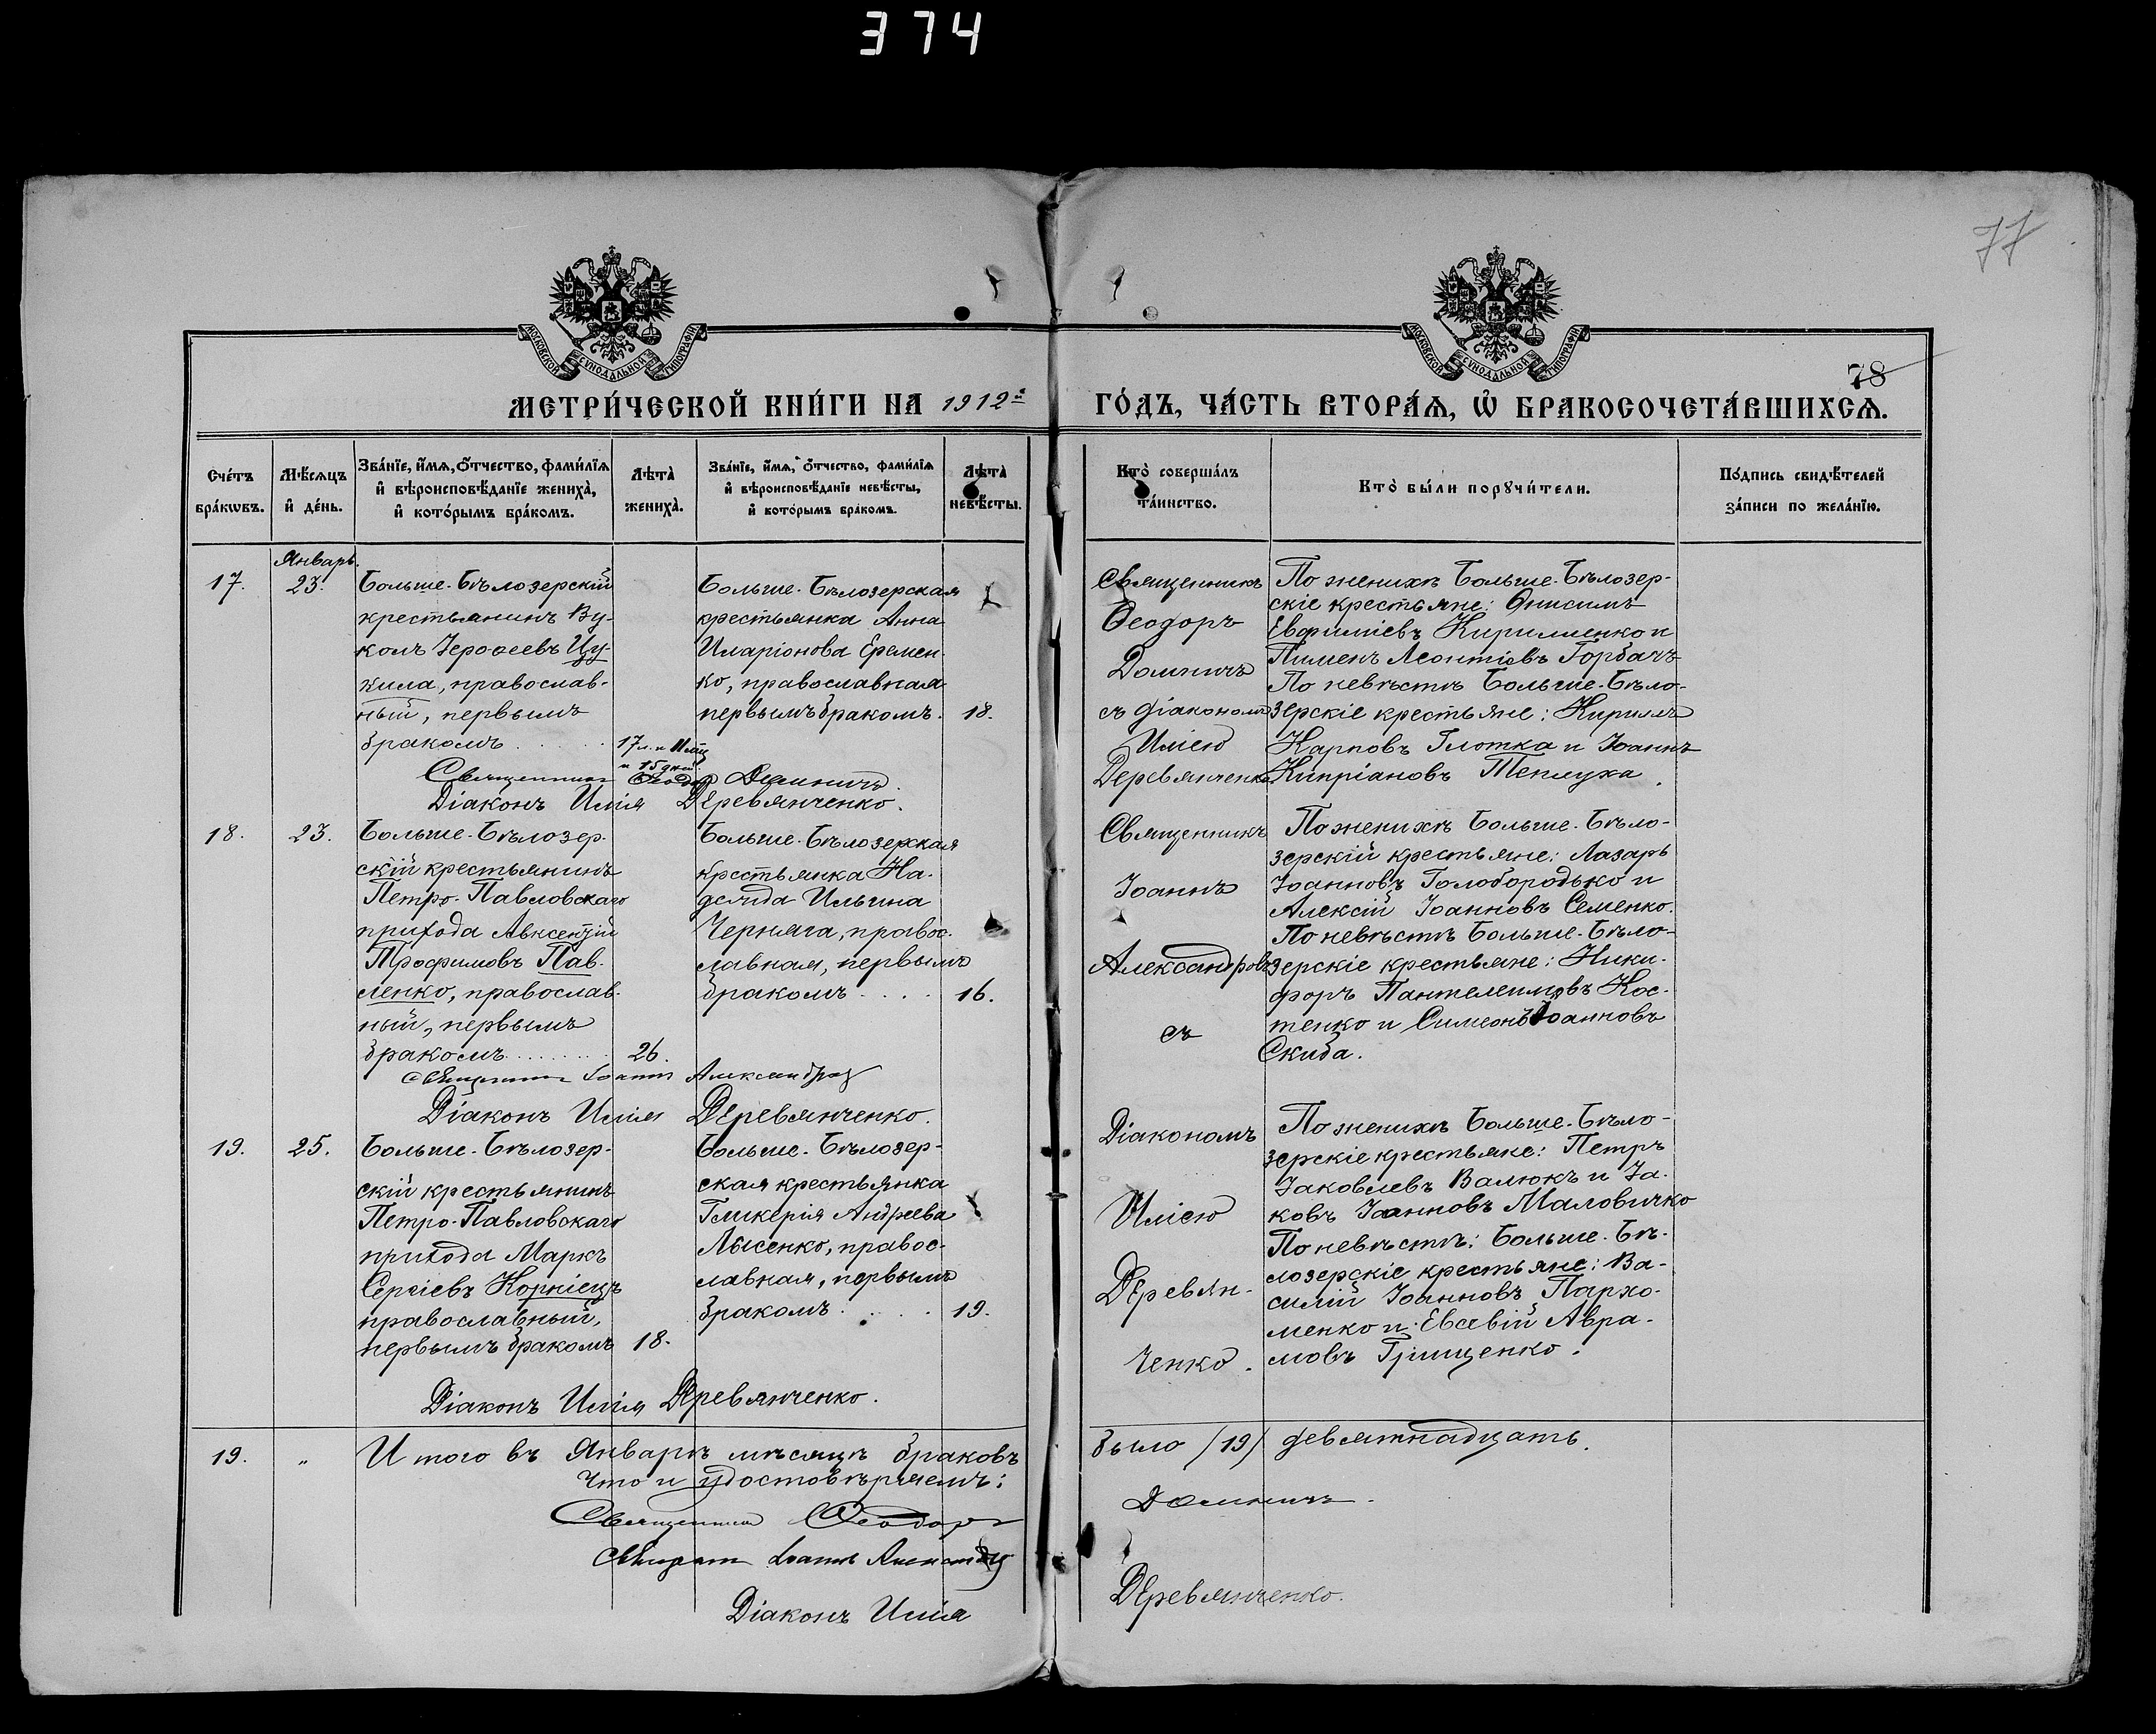 374
77
78
МОСКОВСКОЙ СѴНОДАЛЬНОЙ ТИПОГРАФІИ
МОСКОВСКОЙ СѴНОДАЛЬНОЙ ТИПОГРАФІИ
МЕТРИ́ЧЕСКОЙ КНИ́ГИ НА 1912й ГО́ДЪ, ЧА́СТЬ ВТОРА́Ѧ, Ѡ҆ БРАКОСОЧЕТА́ВШИХСѦ.
Сче́тъ бра́кѡвъ.
Мѣ́сѧцъ и҆ де́нь.
Зва́нїе, и҆́мѧ, ѻ҆́тчество, фами́лїѧ
и҆ вѣроисповѣ́данїе жениха̀,
и҆ кото́рымъ бра́комъ.
Лѣта̀ жениха̀.
Зва́нїе, и҆́мѧ, ѻ҆́тчество, фами́лїѧ
и҆ вѣроисповѣ́данїе невѣ́сты,
и҆ кото́рымъ бра́комъ.
Лѣта̀ невѣ́сты.
Кто̀ соверша́лъ та́инство.
Кто̀ бы́ли порꙋчи́тели.
По́дпись свидѣ́телей
за́писи по жела́нїю.
Январь.
17.
23.
Больше-Бѣлозерскій
крестьянинъ Ву-
колъ Іерофеевъ Цу-
кила, православ-
ный, первымъ
бракомъ
17 л. и 11 мц
и 15 дней.
Больше-Бѣлозерская
крестьянка Анна
Иларіонова Еремен-
ко, православная
первымъ бракомъ.
18.
Священникъ Ѳеодоръ Доминичъ.
Діаконъ Илія Деревянченко.
Священникъ
Ѳеодоръ
Доминичъ
съ діакономъ
Иліею
Деревянченко
По женихѣ Больше-Бѣлозер-
скіе крестьяне: Онисимъ
Евфиміевъ Кирилленко и
Пименъ Леонтіевъ Горбачъ
По невѣстѣ Больше-Бѣло-
зерскіе крестьяне: Кириллъ
Карповъ Глотка и Іоаннъ
Кипріановъ Теплуха.
18.
23.
Больше-Бѣлозер-
скій крестьянинъ
Петро-Павловскаго
прихода Авксентій
Трофимовъ Пав-
ленко, православ-
ный, первымъ
бракомъ
26.
Больше-Бѣлозерская
крестьянка На-
дежда Ильина
Черняга, правос-
лавная, первымъ
бракомъ
16.
Священникъ Іоаннъ Александровъ
Діаконъ Илія Деревянченко.
Священникъ
Іоаннъ
Александровъ
съ
По женихѣ Больше-Бѣло-
зерскій крестьяне: Лазарь
Іоанновъ Голобородько и
Алексій Іоанновъ Семенко.
По невѣстѣ Больше-Бѣло-
зерскіе крестьяне: Ники-
форъ Пантелеимовъ Кос-
тенко и Симеонъ Іоанновъ
Скиба.
19.
25.
Больше-Бѣлозер-
скій крестьянинъ
Петро-Павловскаго
прихода Маркъ
Сергіевъ Корніецъ
православный,
первымъ бракомъ
18.
Больше-Бѣлозер-
ская крестьянка
Гликерія Андреева
Лысенко, правос-
лавная, первымъ
бракомъ
19.
Діаконъ Илія Деревянченко.
Діакономъ
Иліею
Деревян-
ченко.
По женихѣ Больше-Бѣло-
зерскіе крестьяне: Петръ
Іаковлевъ Валюкъ и Іа-
ковъ Іоанновъ Маловичко
По невѣстѣ: Больше-Бѣ-
лозерскіе крестьяне: Ва-
силій Іоанновъ Пархо-
менко и Евсевій Авра-
мовъ Грищенко.
19.
"
Итого въ Январѣ мѣсяцѣ браковъ было /19/ девятнадцать.
Что и удостовѣряемъ:
Священникъ Ѳеодоръ Доминичъ.
Священникъ Іоаннъ Александровъ
Діаконъ Илія Деревянченко.